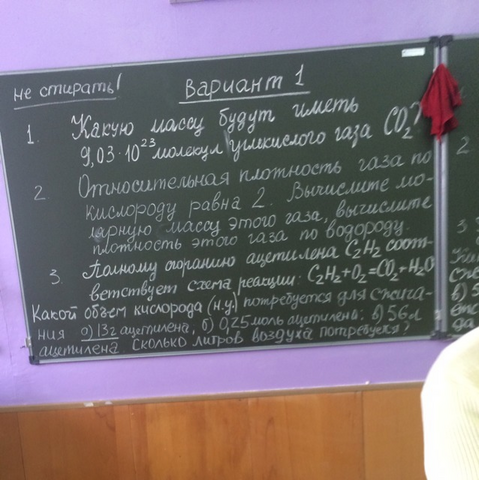 не стирать!
Вариант 1
1. Какую массу будут иметь
9,03·10²³ молекул углкислого газа CO₂?
2. Относительная плотность газа по
кислороду равна 2. Вычислите мо-
лярную массу этого газа, вычислите
плотность этого газа по водороду.
3. Полному сгоранию ацетилена C₂H₂ соот-
ветствует схема реакции: C₂H₂+O₂=CO₂+H₂O
Какой объем кислорода (н.у.) потребуется для сжига-
ния а) 13г ацетилена, б) 0,25 моль ацетилена; в) 56л
ацетилена Сколько литров воздуха потребуется?
2.
3